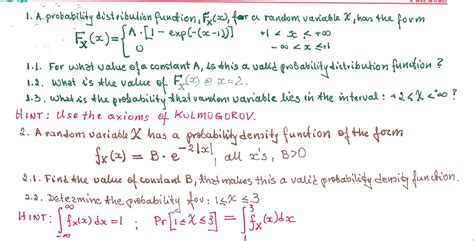 1. A probability distribution function, F_X(x), for a random variable X, has the form
F_X(x) = { A·[1 - exp(-(x-1))] +1 < x < +∞
0 -∞ < x ≤ +1
1.1. For what value of a constant A, is this a valid probability distribution function?
1.2. What is the value of F_X(x) @ x=2.
1.3. What is the probability that random variable lies in the interval: +2 < X < ∞ ?
HINT: Use the axioms of KULMOGOROV.
2. A random variable X has a probability density function of the form
f_X(x) = B·e^{-2|x|}, all x's, B>0
2.1. Find the value of constant B, that makes this a valid probability density function.
2.2. Determine the probability for: 1 ≤ X ≤ 3
HINT: ∫_{-∞}^{∞} f_X(x)dx = 1 ; Pr[1 ≤ X ≤ 3] = ∫_1^3 f_X(x)dx